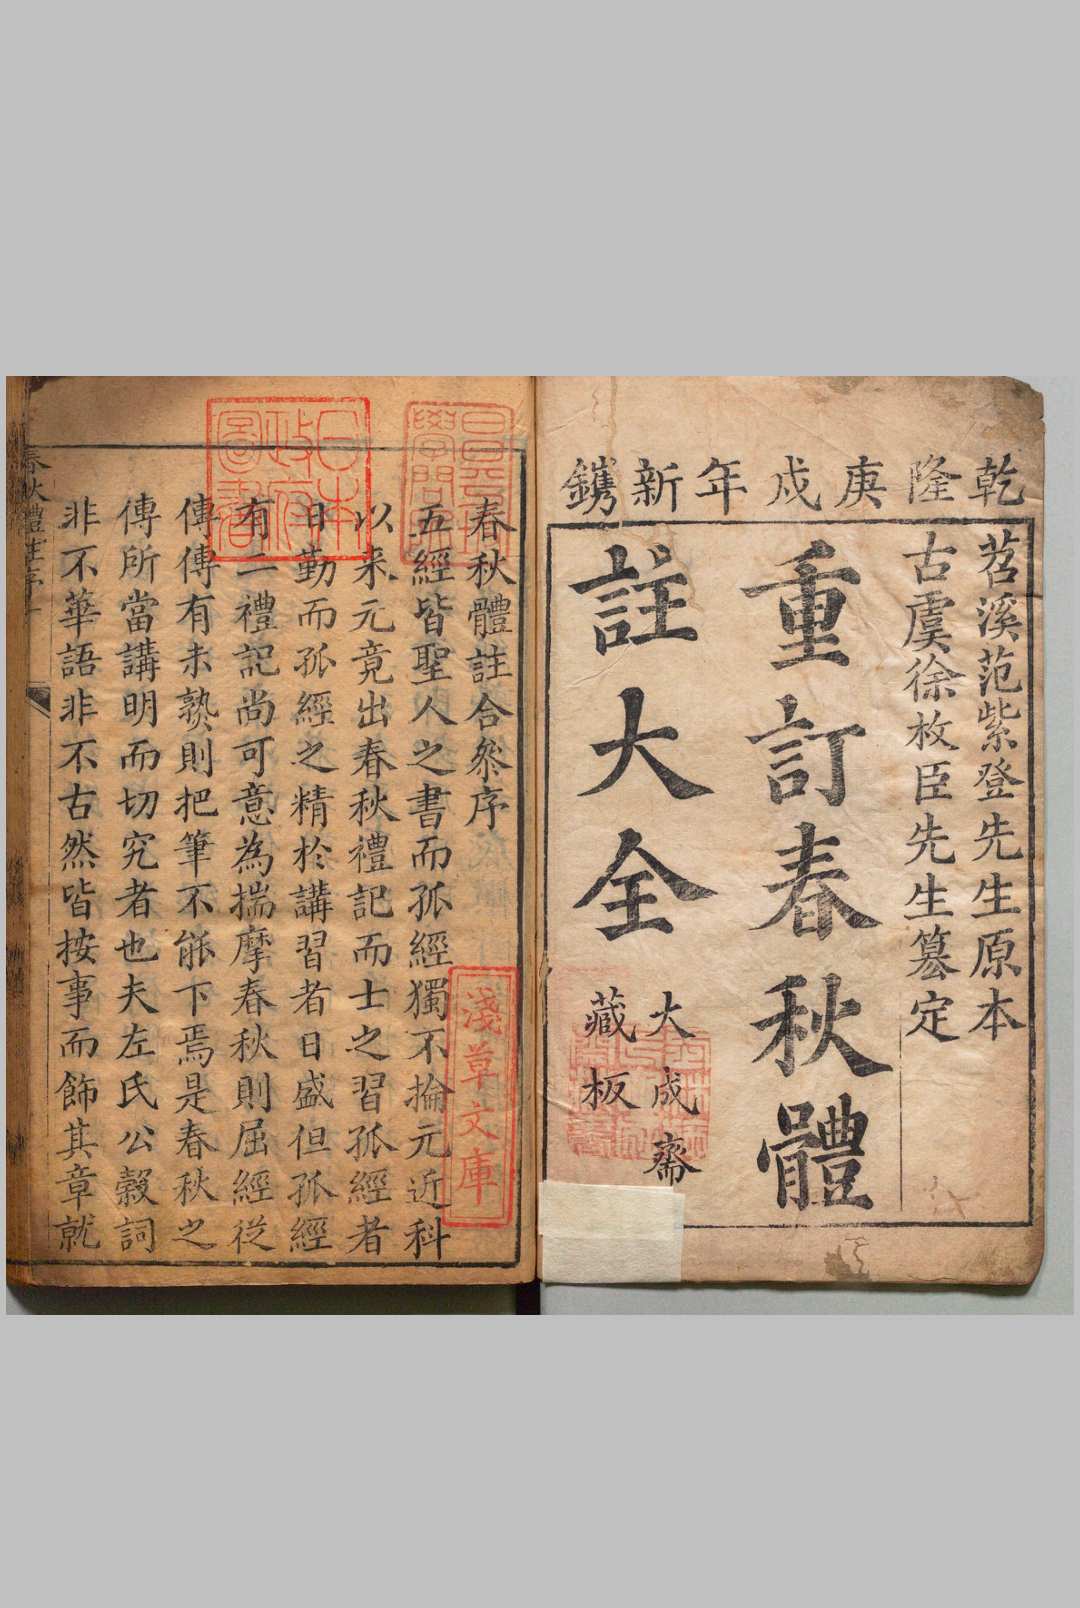 乾隆庚戌年新鐫
苕溪范紫登先生原本
古虞徐枚臣先生篡定
重訂春秋體
註大全
大成齋
藏板
春秋體註合叅序
五經皆聖人之書而孤經獨不掄元近科
以来元竟出春秋禮記而士之習孤經者
日勤而孤經之精於講習者日盛但孤經
有二禮記尚可意為揣摩春秋則屈經從
傳傳有未熟則把筆不能下焉是春秋之
傳所當講明而切究者也夫左氏公穀詞
非不華語非不古然皆按事而飾其章就
春秋體註序 一
日本政府圖書
昌平坂學問所
淺草文庫